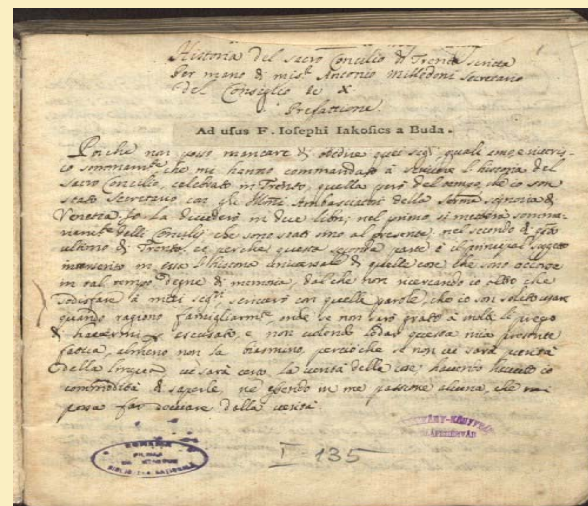 Historia del sacro Concilio di Trento scritta
Per mano di mis.r Antonio Milledoni Secretario
del Consiglio de X
Prefattione.
Ad usus F. Iosephi Iakosics a Buda.
Poiche non posso mancare di obedire quei sig.ri quali amo, e
che mi hanno commandato à scrivere l'historia del
sacro Concilio, celebrato in Trento, quella però del tempo, che io son
stato Secretario con gli Ambasciatori della Ser.ma signoria di
Venetia. Io la dividerò in due libri; nel primo si
delli Concilij che sono stati sino al presente, nel secondo di q.to
ultimo di Trento, et perche questa seconda parte è il principal soggetto
in q.to l'historia universale di quelle cose che sono occorse
in tal tempo degne di memoria, dal che non ricercando io altro che
sodisfare à miei sig.ri, scriverò con quelle parole, che io son solito usare
quando ragiono famigliarm.te onde se non sarò grato à molti li prego
di havermi escusato, e non volendo lodar questa mia presente
fatica, almeno non la biasmino, percioche se non vi sarà
della lingua vi sarà certo la verità delle cose, havendo havuto io
commodità di saperle, ne essendo in me passione alcuna, che mi
possa far deviare dalla verità.
I 135
ROMANIA
FILIALA
BIBLIOTECII NATIONALE